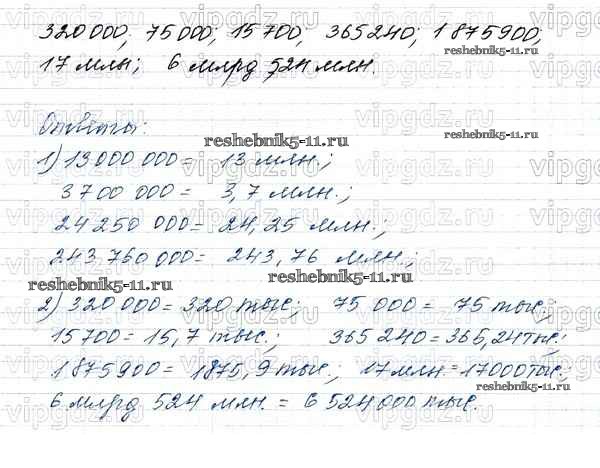 320 000; 75 000; 15 700; 365 240; 1 875 900;
reshebnik5-11.ru
17 млн; 6 млрд 524 млн.
Ответы:
reshebnik5-11.ru
1) 13 000 000 = 13 млн.;
3 700 000 = 3,7 млн.;
24 250 000 = 24,25 млн.;
243 760 000 = 243,76 млн.;
reshebnik5-11.ru
2) 320 000 = 320 тыс; 75 000 = 75 тыс.;
15 700 = 15,7 тыс.; 365 240 = 366,24 тыс;
1 875 900 = 1875,9 тыс.; 17 млн = 17000 тыс.;
reshebnik5-11.ru
6 млрд 524 млн. = 6 524 000 тыс.
vipgdz.ru